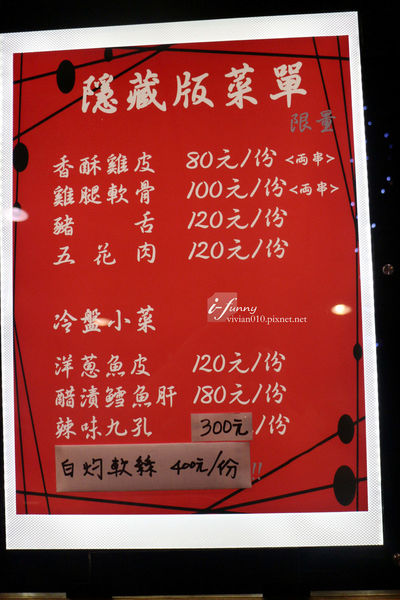 隱藏版菜單
限量
香酥雞皮 80元/份<両串>
雞腿軟骨 100元/份<両串>
豬舌 120元/份
五花肉 120元/份
i-funny
vivian010.pixnet.net
冷盤小菜
洋蔥魚皮 120元/份
醋漬鱈魚肝 180元/份
辣味九孔 300元/份
白灼軟絲 400元/份!!